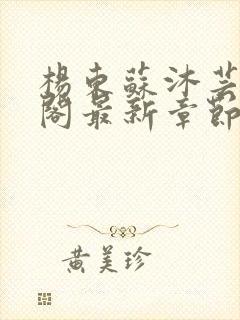 楊東蘇沐芸
閣最新章節
黃美珍